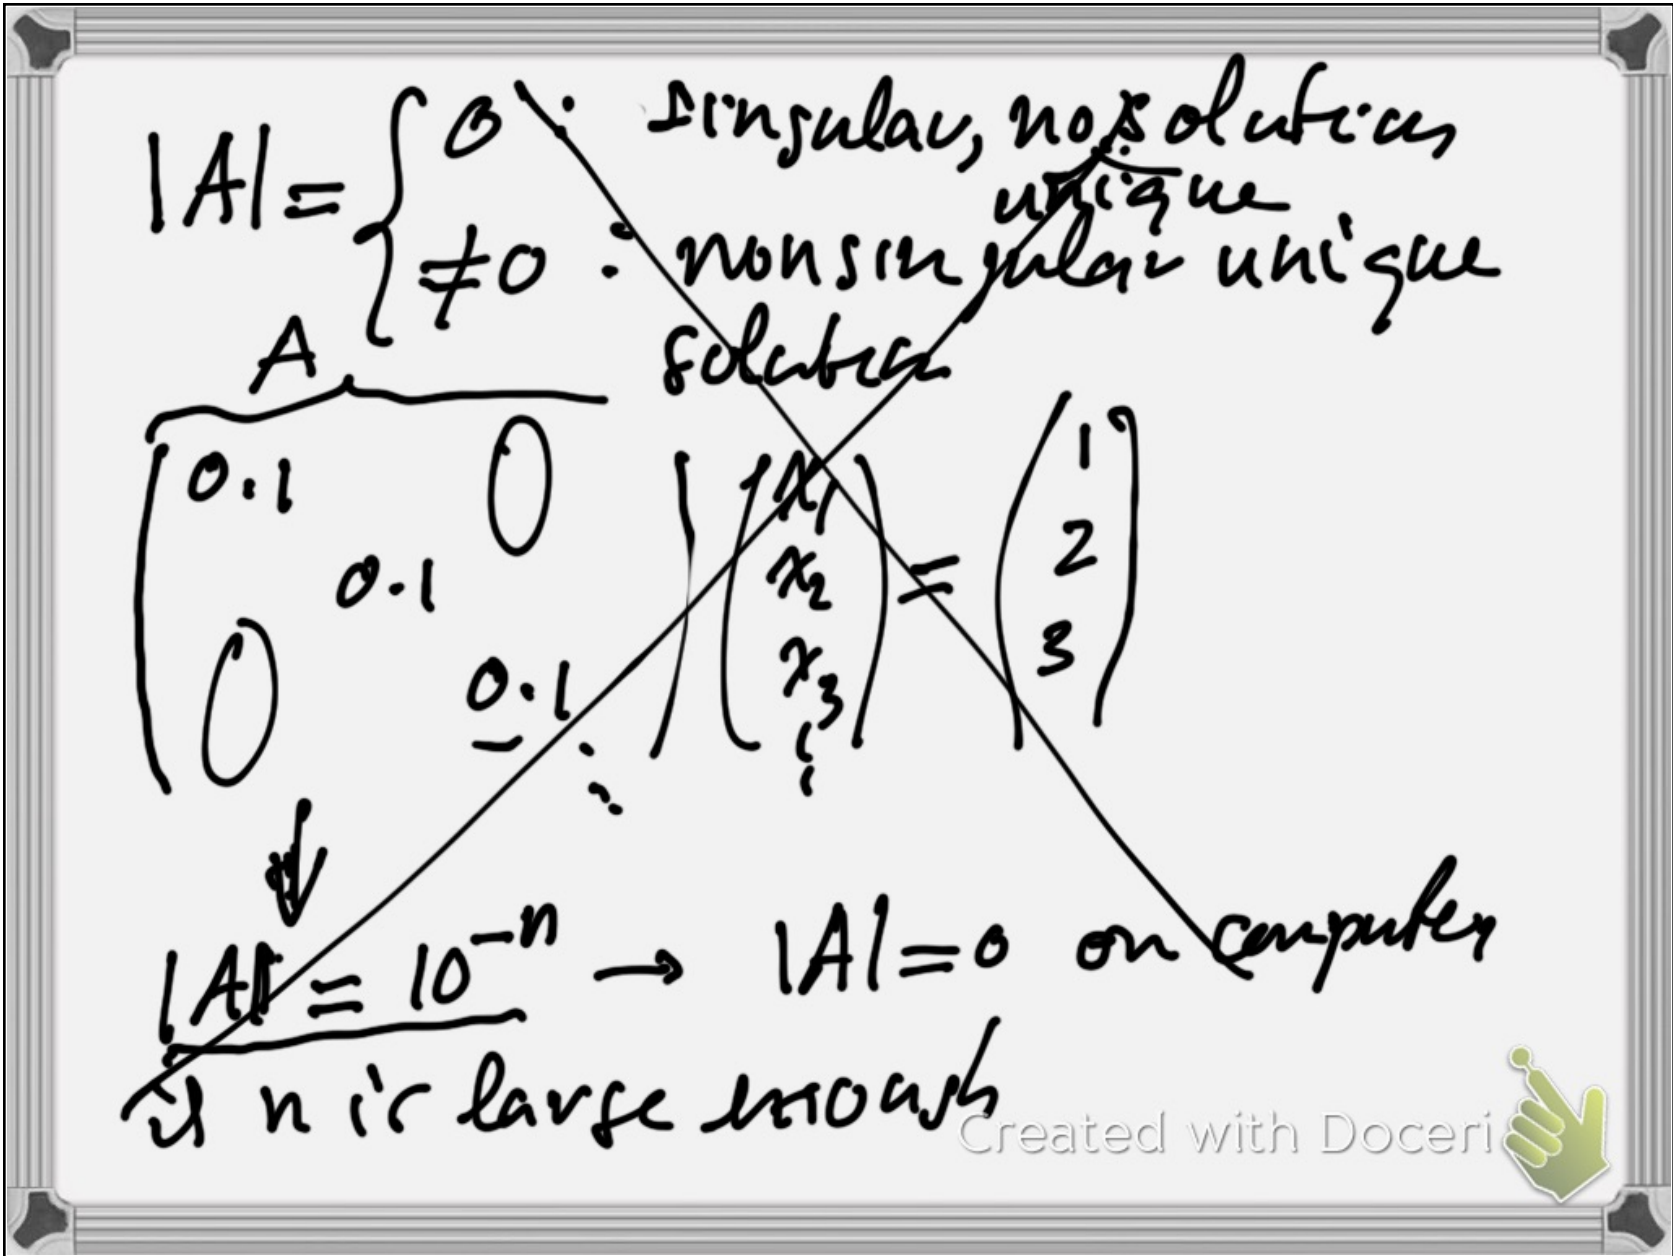 |A| = { 0 : singular, no solution,
unique
≠0 : nonsingular unique
solution
A
0.1 0
0.1
0 0.1
⋱
x₁
x₂
x₃
⋮
=
1
2
3
↓
|A| = 10⁻ⁿ → |A| = 0 on computer
if n is large enough
Created with Doceri